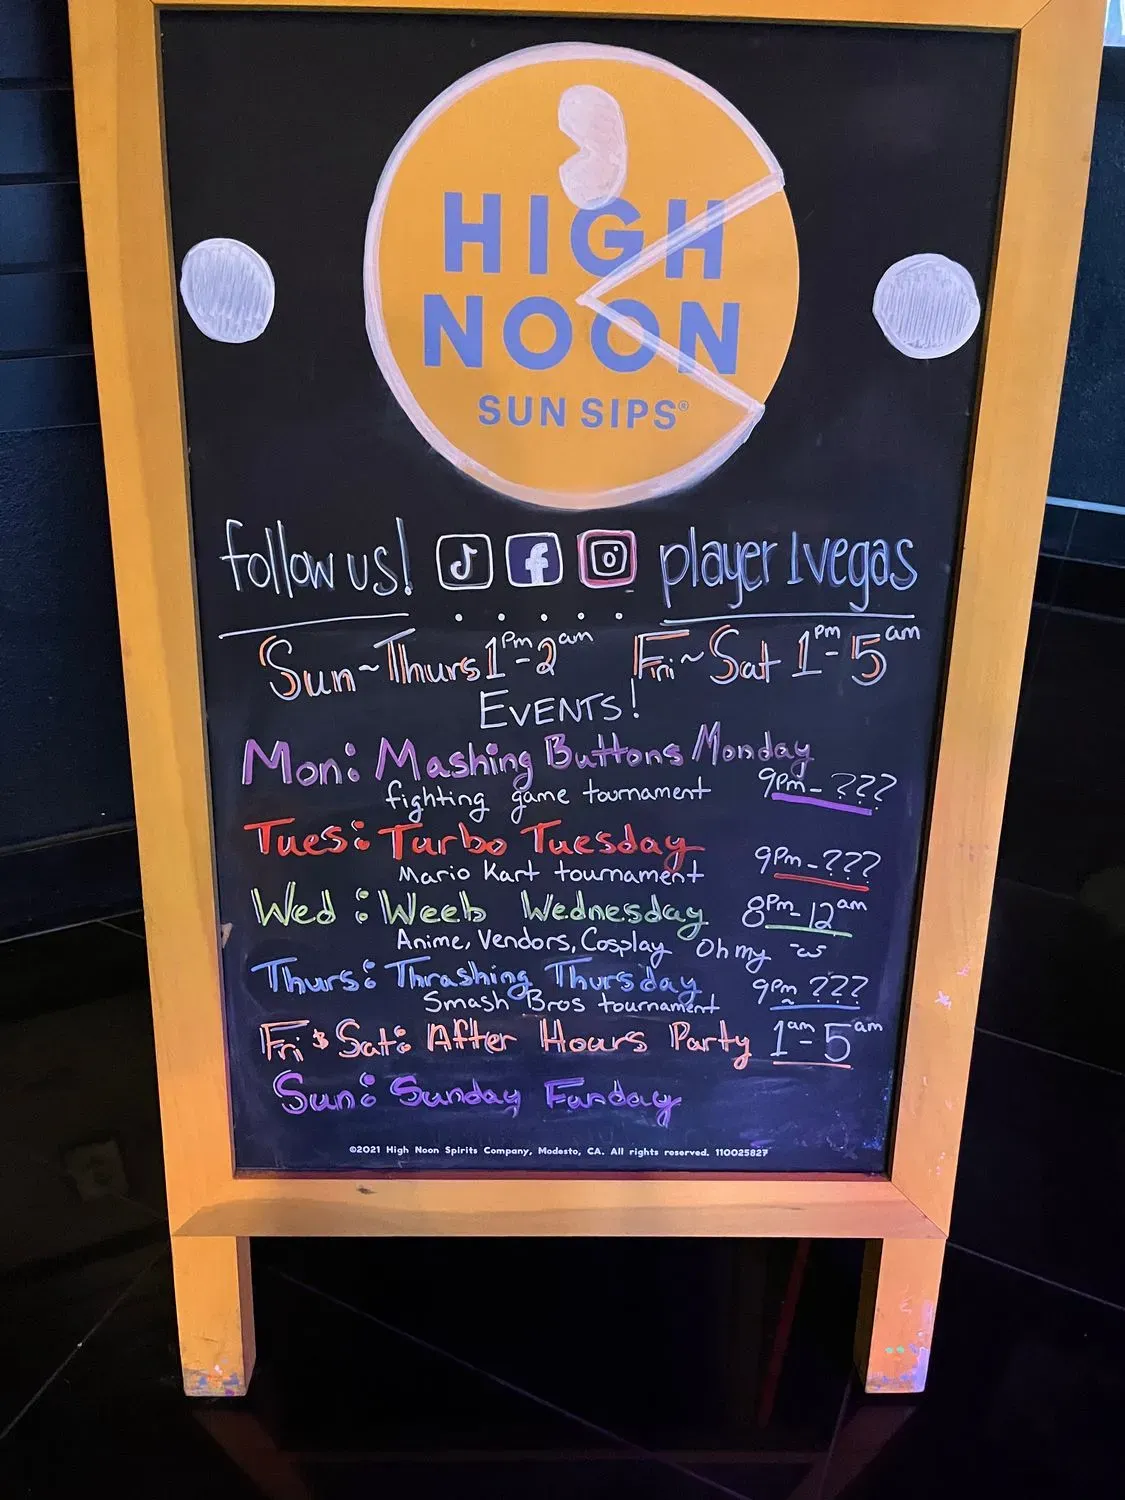 HIGH
NOON
SUN SIPS®
follow us! player1vegas
Sun~Thurs 1pm-2am Fri~Sat 1pm-5am
EVENTS!
Mon: Mashing Buttons Monday
fighting game tournament 9pm-???
Tues: Turbo Tuesday
Mario Kart tournament 9pm-???
Wed: Weeb Wednesday 8pm-12am
Anime, Vendors, Cosplay Oh my
Thurs: Thrashing Thursday
Smash Bros tournament 9pm~???
Fri & Sat: After Hours Party 1am-5am
Sun: Sunday Funday
©2021 High Noon Spirits Company, Modesto, CA. All rights reserved. 110025827